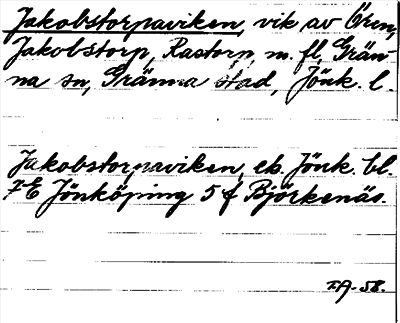 Jakobstorpaviken, vik av Ören,
Jakobstorp, Rastorp, m. fl, Grän-
na sn, Gränna stad, Jönk. l.
Jakobstorpaviken, ek. Jönk. bl.
7E Jönköping 5 f Björkenäs.
T.A. 58.